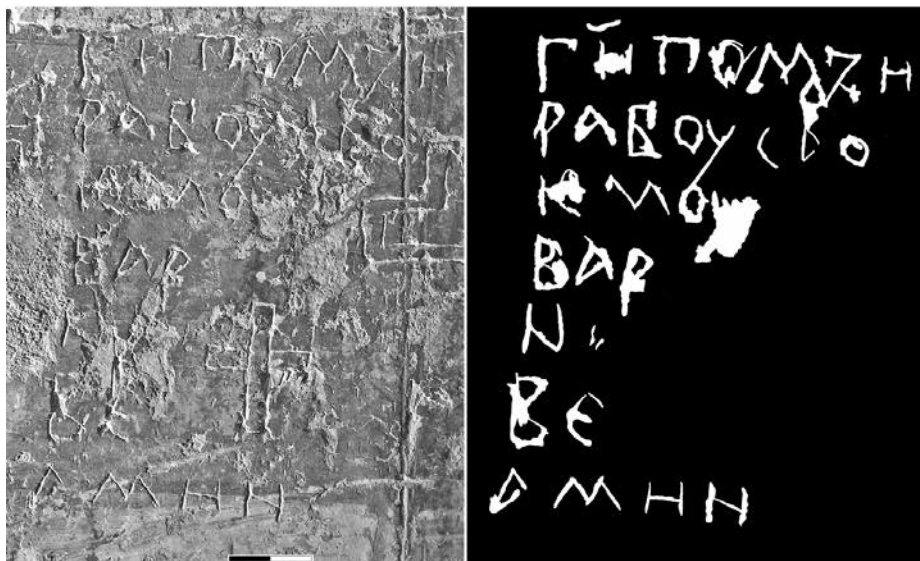 ГИ҃ ПОМОЗИ
РАБОУ СВО
ѤМОУ
ВАР
Н
ВЕ
АМИН